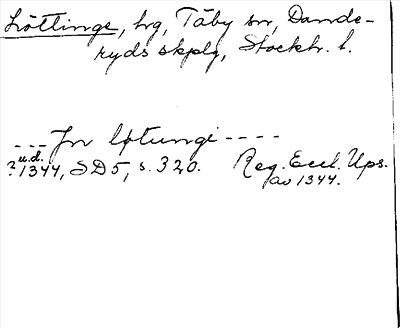 Löttinge, hg, Täby sn, Dande-
ryds skplg, Stockh. l.
--- Jn løtungi ----
u.d.
? 1344, SD5, s. 320. Reg. Eccl. Ups.
av 1344.